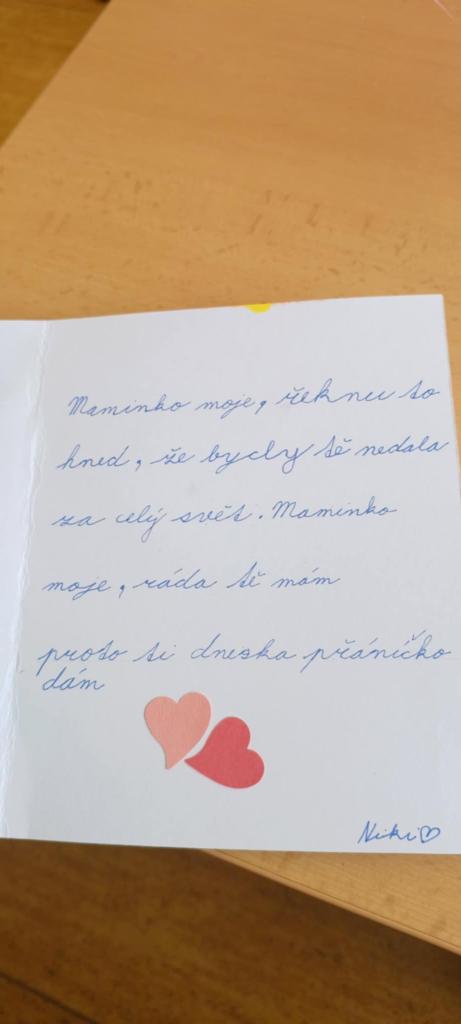 Maminko moje, řeknu to
hned, že bycly tě nedala
za celý svět. Maminko
moje, ráda tě mám
proto ti dneska přáníčko
dám
Niki♡